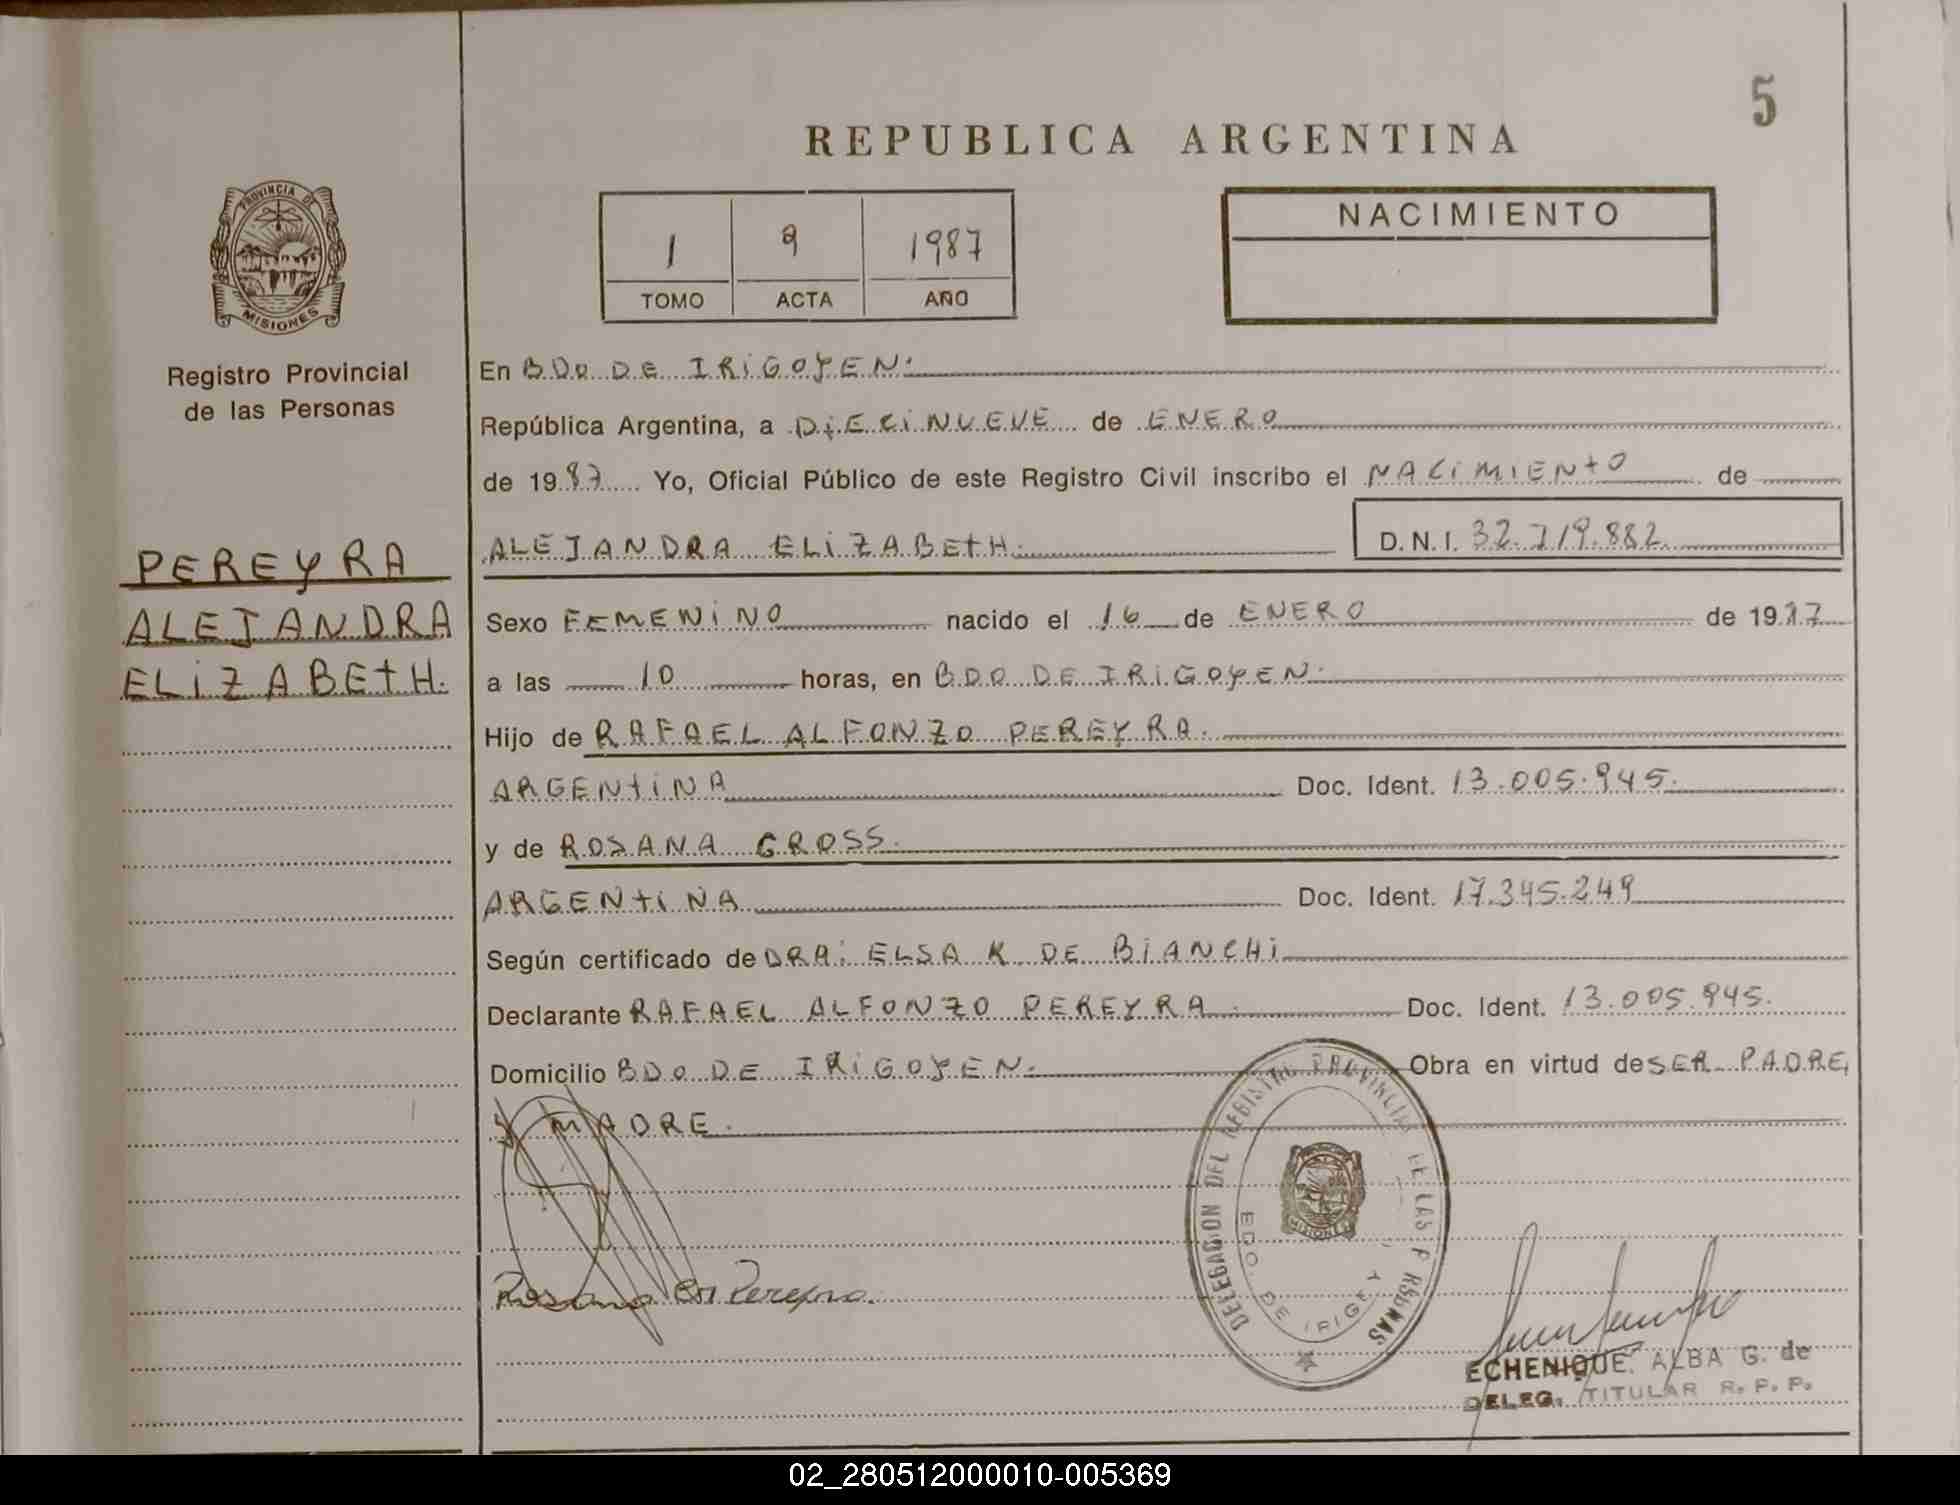 5
REPUBLICA ARGENTINA
PROVINCIA DE
MISIONES
1 9 1987
TOMO ACTA AÑO
NACIMIENTO
Registro Provincial
de las Personas
PEREYRA
ALEJANDRA
ELIZABETH.
En BDO DE IRIGOYEN.
República Argentina, a DIECINUEVE de ENERO
de 1987 Yo, Oficial Público de este Registro Civil inscribo el NACIMIENTO de
ALEJANDRA ELIZABETH. D.N.I. 32.719.882
Sexo FEMENINO nacido el 16 de ENERO de 1987
a las 10 horas, en BDO DE IRIGOYEN.
Hijo de RAFAEL ALFONZO PEREYRA.
ARGENTINA Doc. Ident. 13.005.945.
y de ROSANA GROSS.
ARGENTINA Doc. Ident. 17.345.249
Según certificado de DRA: ELSA K DE BIANCHI
Declarante RAFAEL ALFONZO PEREYRA. Doc. Ident. 13.005.945.
Domicilio BDO DE IRIGOYEN. Obra en virtud de SER PADRE,
Y MADRE.
DELEGACION DEL REGISTRO PROVINCIAL DE LAS P RSONAS
BDO. DE IRIGOY
MISIONES
Rosana Pereyra.
ECHENIQUE. ALBA G. de
DELEG. TITULAR R. P. P.
02_280512000010-005369